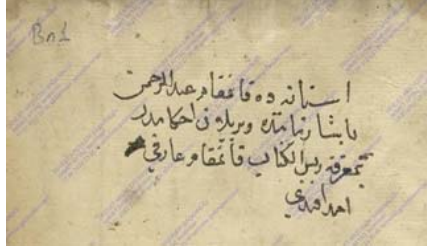 Bn1
استانه ده قائمقام عبدالرحمن
پاشا زماننده ویریلان احکامدر
بمعرفة رئیس الکتاب قائمقام عارفی
احمد افندی